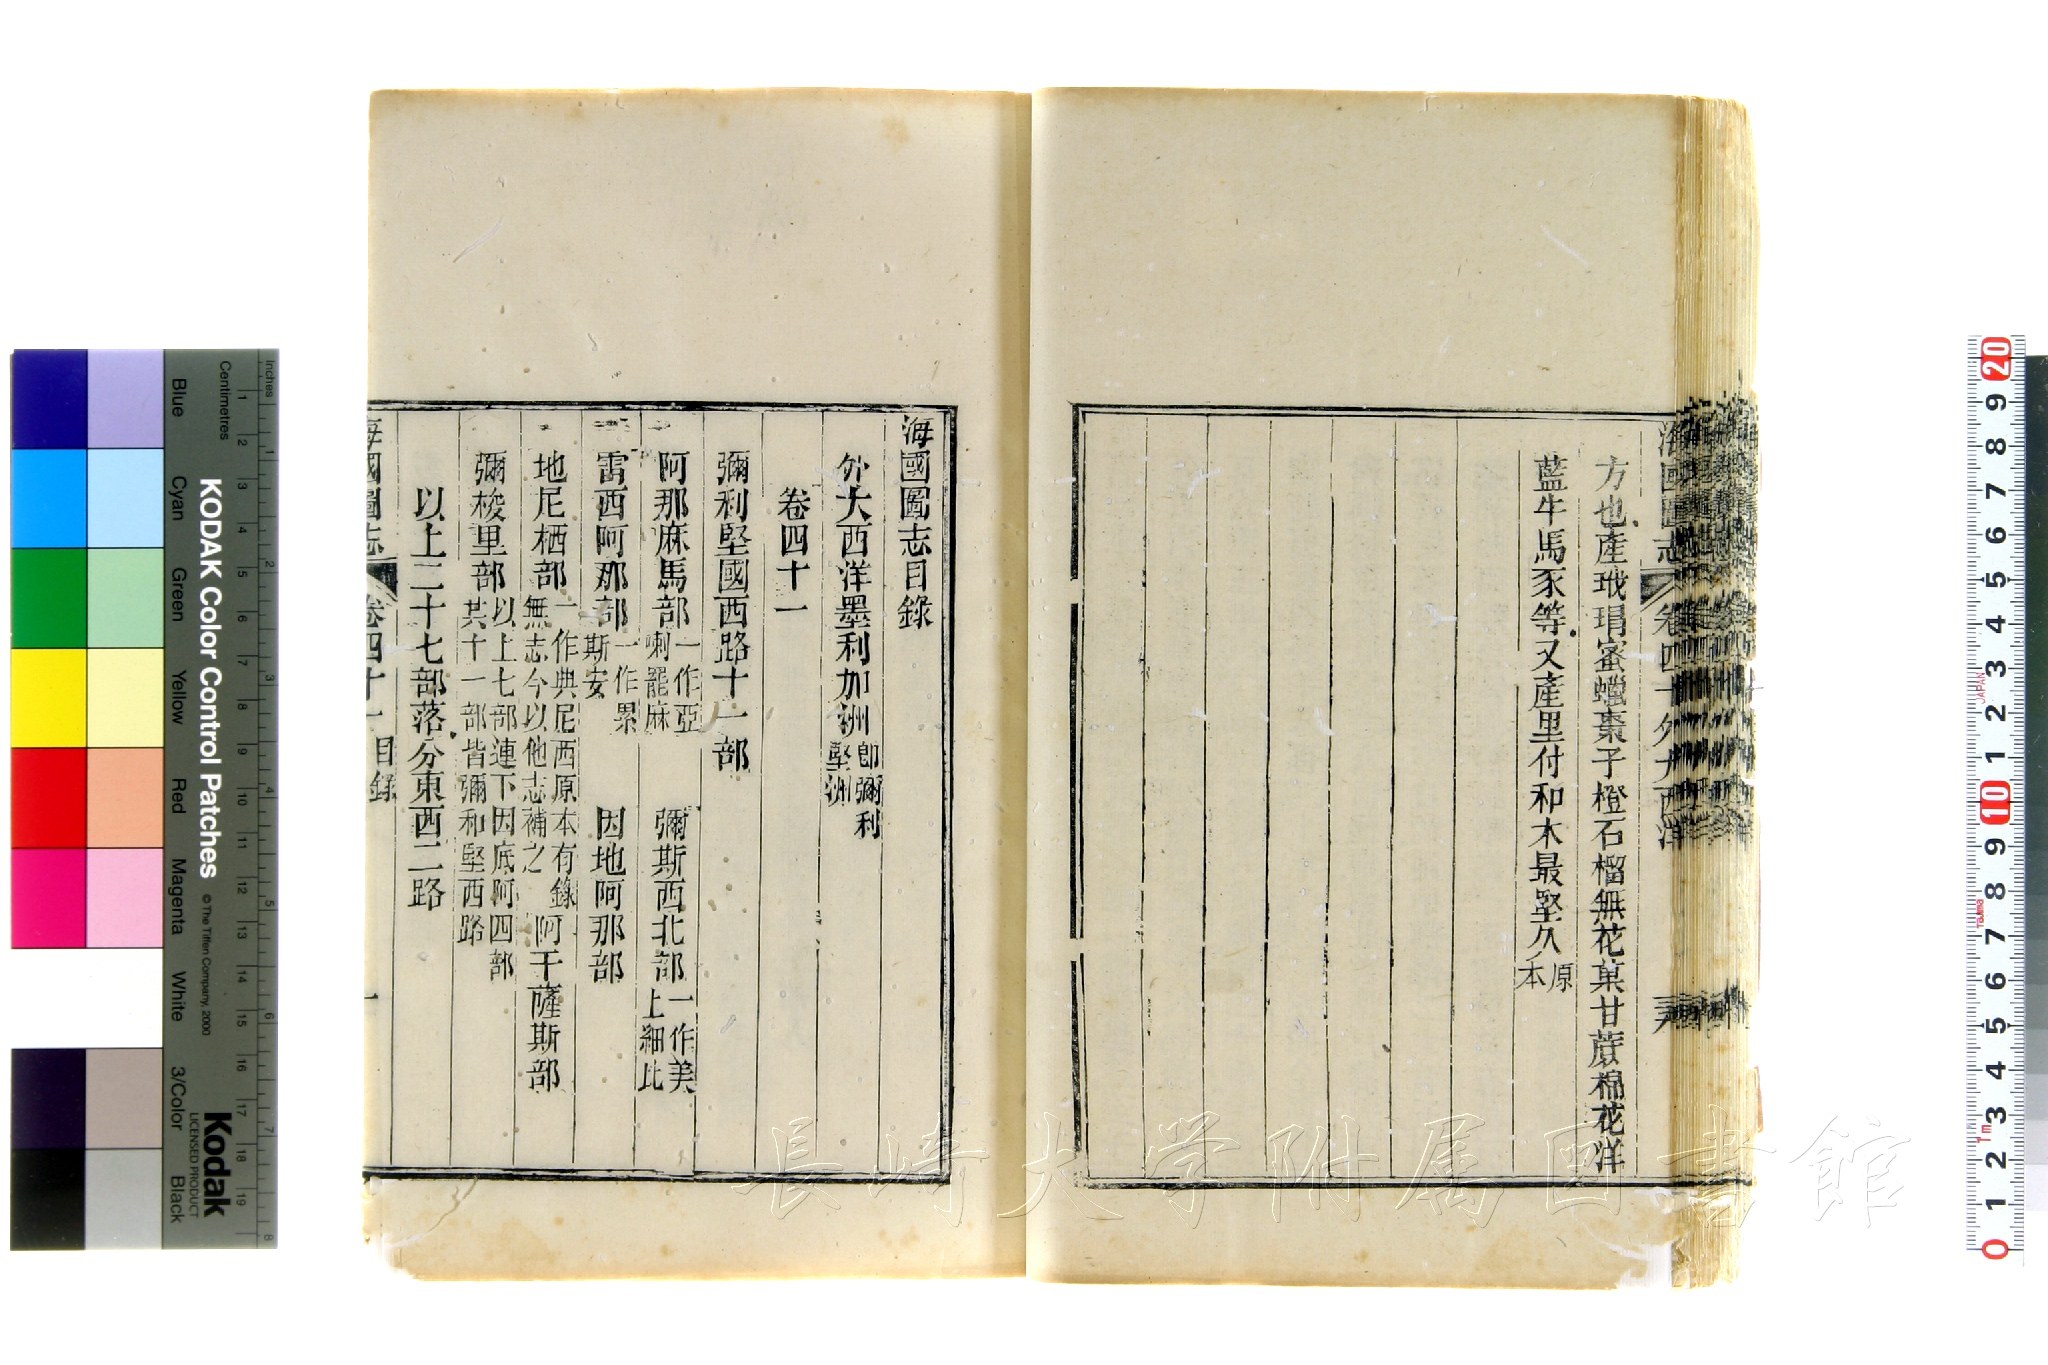 海國圖志 卷四十 外大西洋
方也產玳瑁蜜蠟棗子橙石榴無花菓甘蔗棉花洋
藍牛馬豕等又產里付和木最堅久原
本
海國圖志目錄
外大西洋墨利加洲即彌利
堅洲
卷四十一
彌利堅國西路十一部
阿那麻馬部一作亞
喇罷麻
彌斯西北部一作美
上細比
雷西阿那部一作累
斯安
因地阿那部
地尼栖部一作典尼西原本有錄
無志今以他志補之
阿干薩斯部
彌梭里部以上七部連下因底阿四部
共十一部皆彌和堅西路
以上二十七部落分東西二路
海國圖志 卷四十一 目錄 一
長崎大学附属図書館
KODAK Color Control Patches
© The Tiffen Company, 2000
Kodak
LICENSED PRODUCT
Inches
Centimetres
Blue
Cyan
Green
Yellow
Red
Magenta
White
3/Color
Black
1 2 3 4 5 6 7 8
1 2 3 4 5 6 7 8 9 10 11 12 13 14 15 16 17 18 19
20 9 8 7 6 5 4 3 2 1 10 9 8 7 6 5 4 3 2 1 0
JAPAN